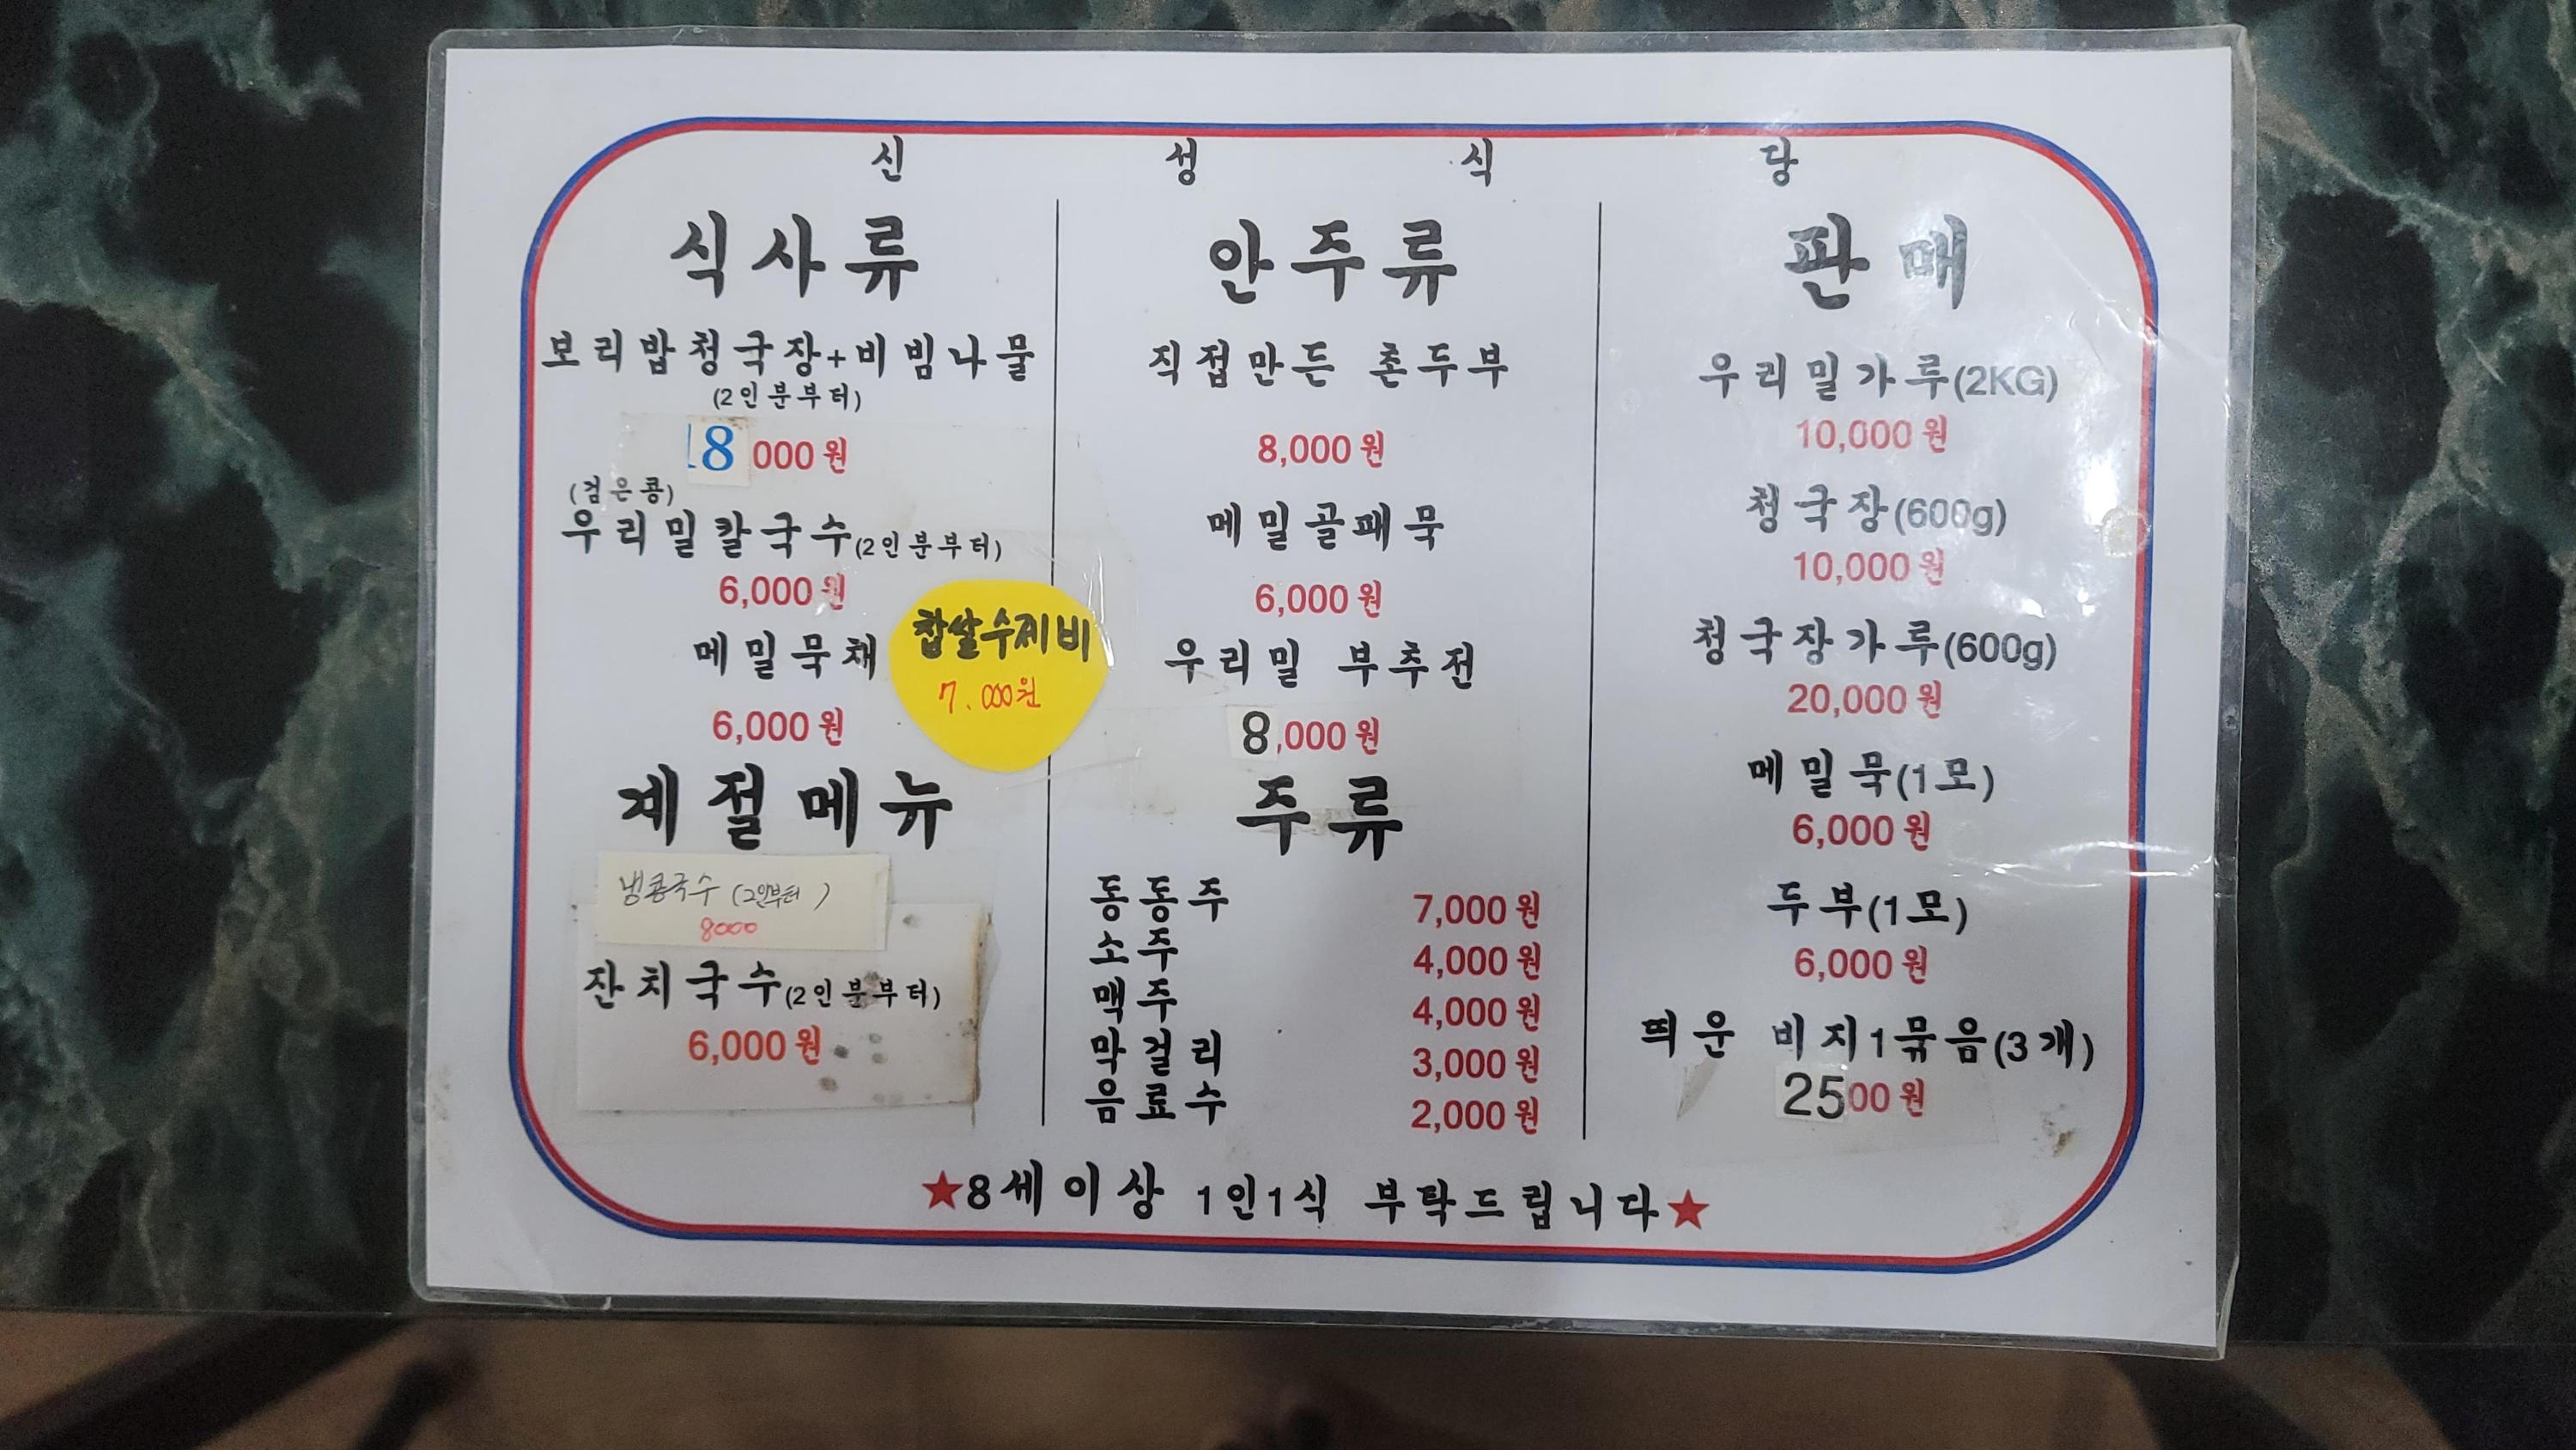 신 성 식 당
식사류
보리밥청국장+비빔나물
(2인분부터)
18 000원
(검은콩)
우리밀칼국수(2인분부터)
6,000원
메밀묵채
6,000원
찹쌀수제비
7.000원
계절메뉴
냉콩국수 (2인부터)
8000
잔치국수(2인분부터)
6,000원
안주류
직접만든 촌두부
8,000원
메밀골패묵
6,000원
우리밀 부추전
8,000원
주류
동동주 7,000원
소주 4,000원
맥주 4,000원
막걸리 3,000원
음료수 2,000원
판매
우리밀가루(2KG)
10,000원
청국장(600g)
10,000원
청국장가루(600g)
20,000원
메밀묵(1모)
6,000원
두부(1모)
6,000원
띄운 비지1묶음(3개)
2500원
★8세이상 1인1식 부탁드립니다★